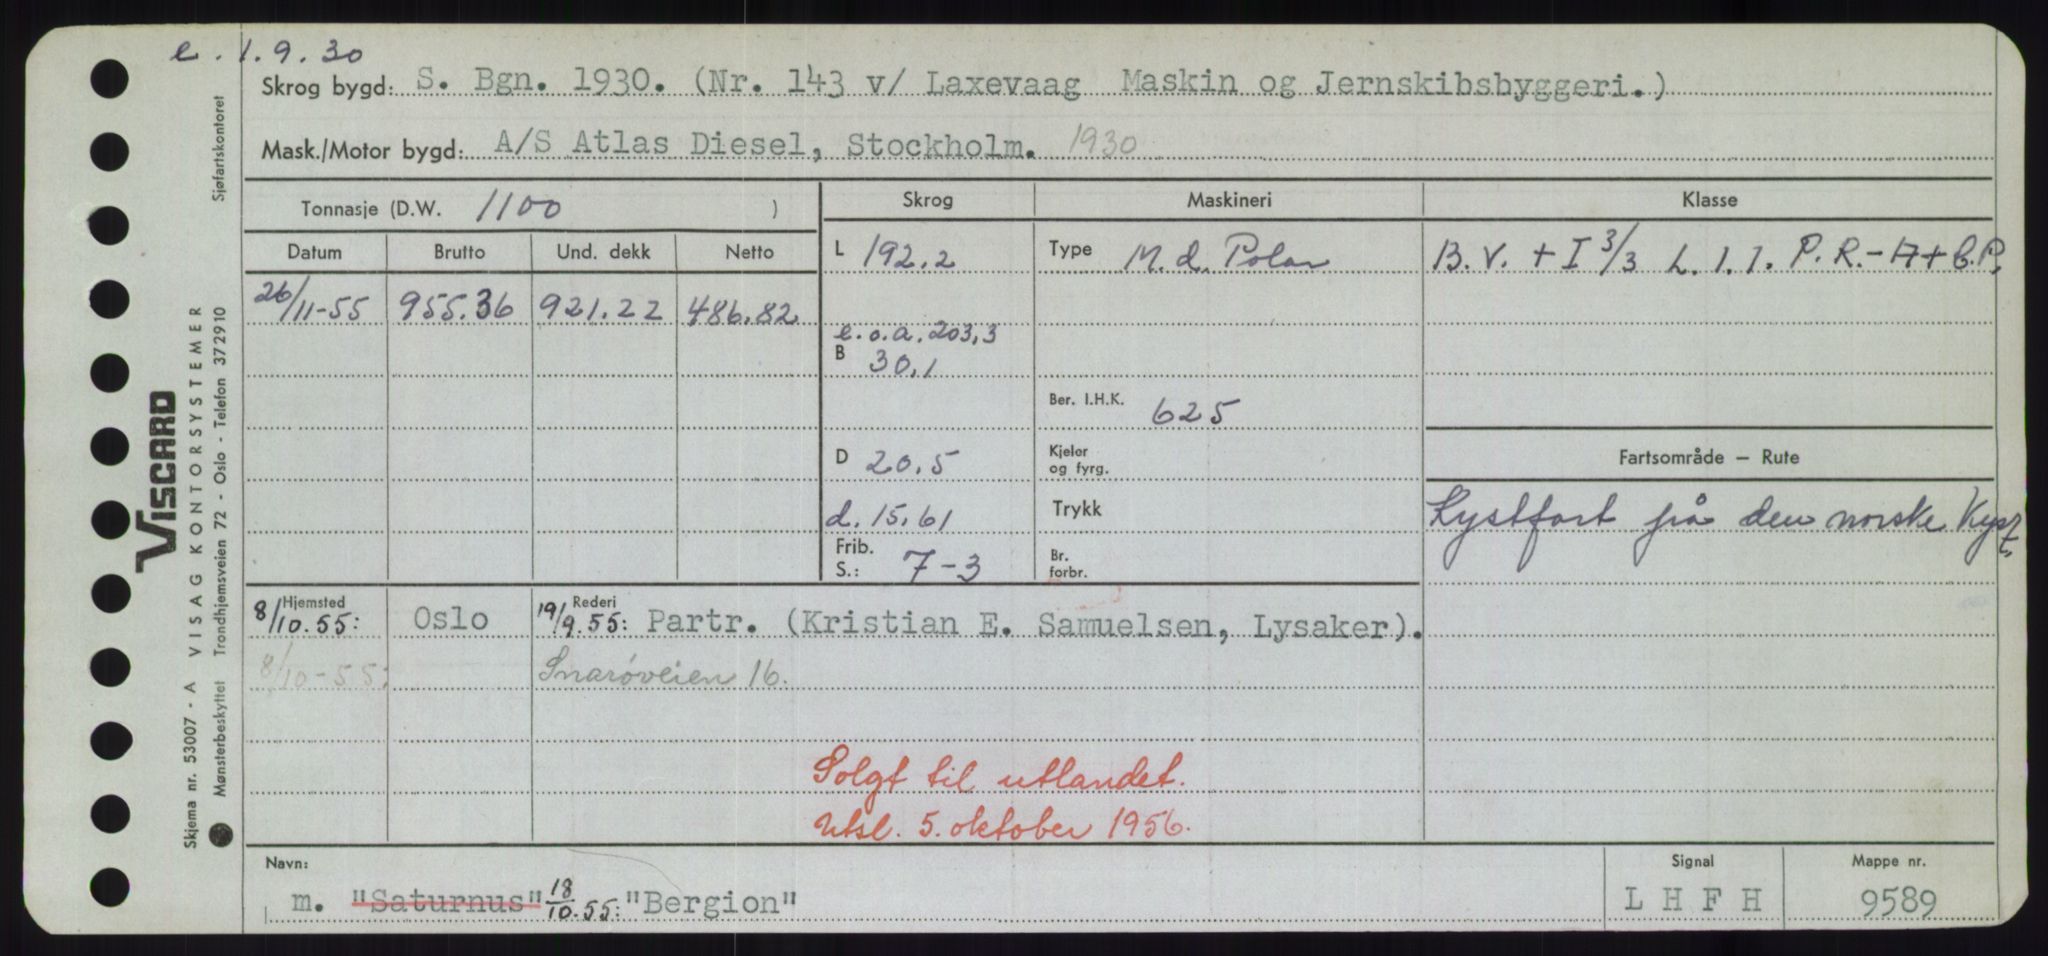 e. 1.9.30
Skrog bygd: S. Bgn. 1930. (Nr. 143 v/ Laxevaag Maskin og Jernskibsbyggeri.)
Mask./Motor bygd: A/S Atlas Diesel, Stockholm. 1930
Tonnasje (D.W. 1100 )
Skrog
Maskineri
Klasse
Datum Brutto Und. dekk Netto
L 192.2
Type M.d. Polar
B.V. + I 3/3 L.1.1. P.R.-A+&.P.
26/11-55 955.36 921.22 486.82
e.o.a. 203,3
B 30,1
Ber. I.H.K. 625
D 20.5
Kjeler og fyrg.
Fartsområde — Rute
d. 15.61
Trykk
Kystfart på den norske Kyst.
Frib. S.: 7-3
Br. forbr.
Hjemsted 8/10.55: Oslo
Rederi 19/9.55: Partr. (Kristian E. Samuelsen, Lysaker).
8/10-55: Snarøveien 16.
Solgt til utlandet.
Utsl. 5. oktober 1956.
Navn: m. "Saturnus" 18/10.55: "Bergion"
Signal L H F H
Mappe nr. 9589
VISCARD
VISAG KONTORSYSTEMER
Trondhjemsveien 72 - Oslo - Telefon 372910
Skjema nr. 53007 - A
Mønsterbeskyttet
Sjøfartskontoret